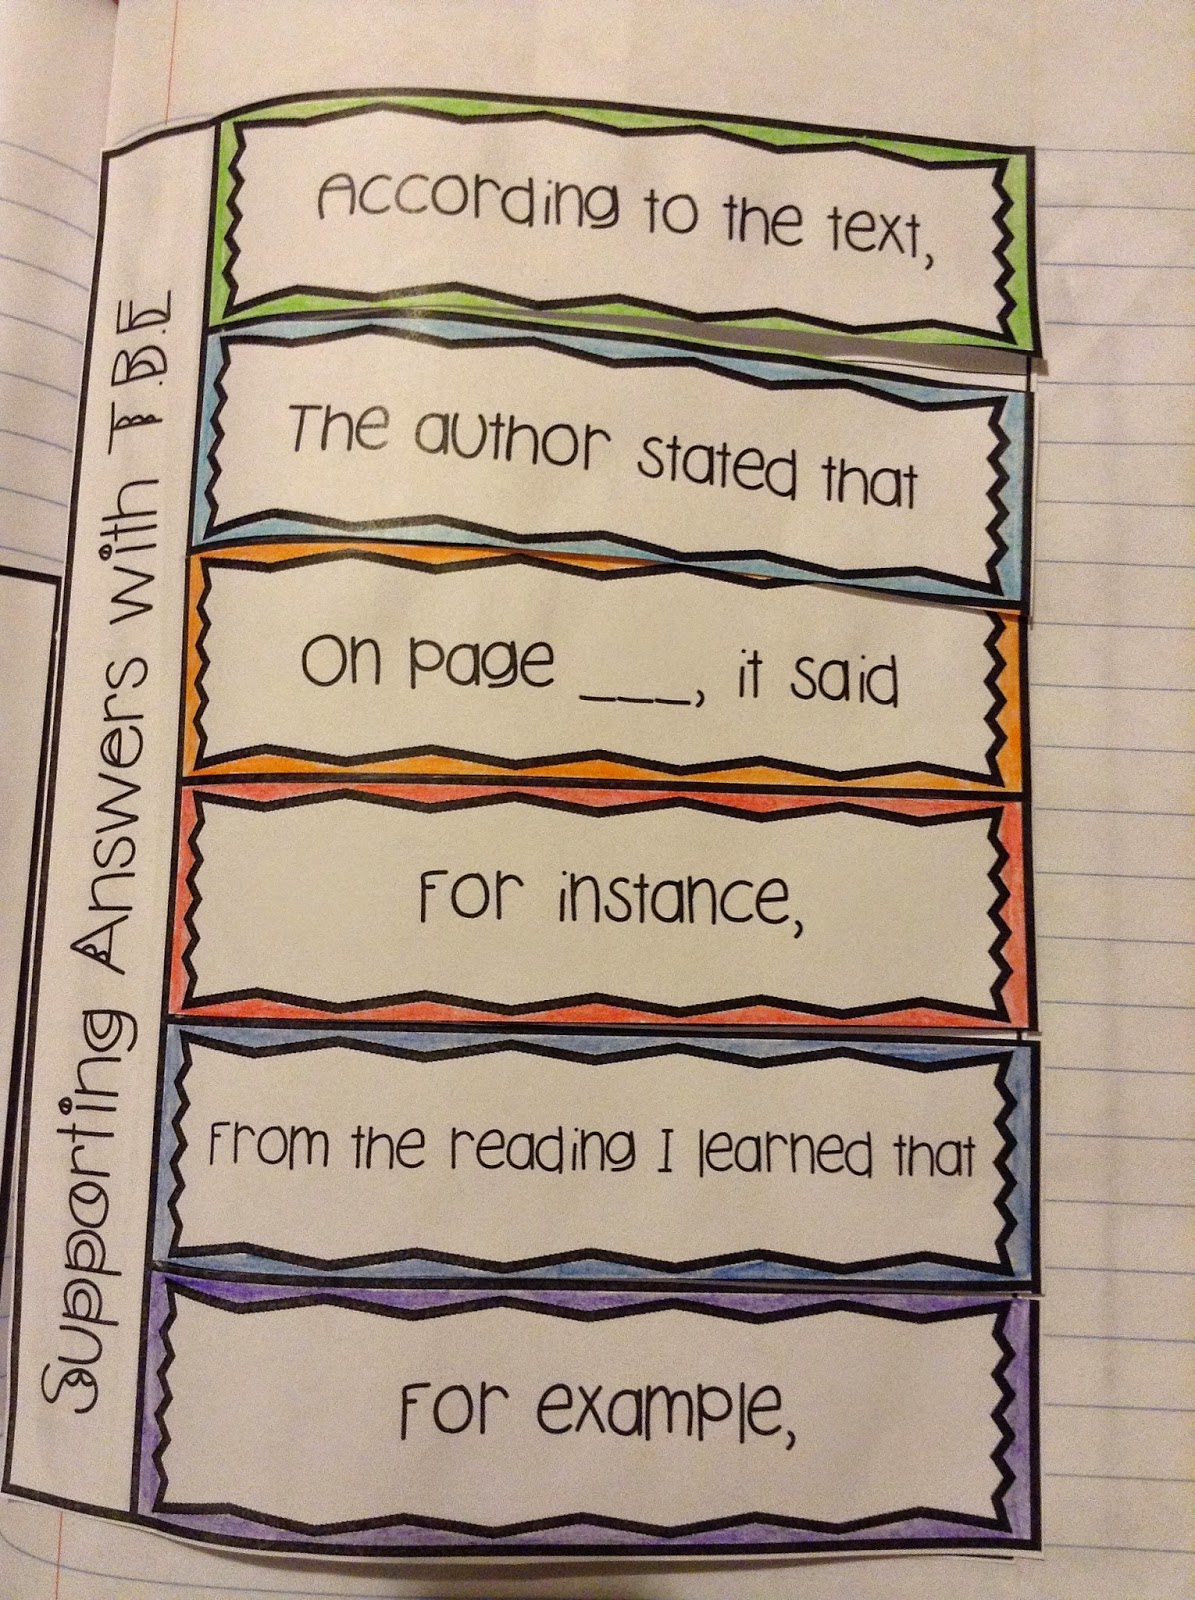 Supporting Answers with T.B.E
According to the text,
The author stated that
On page ___, it said
For instance,
From the reading I learned that
For example,